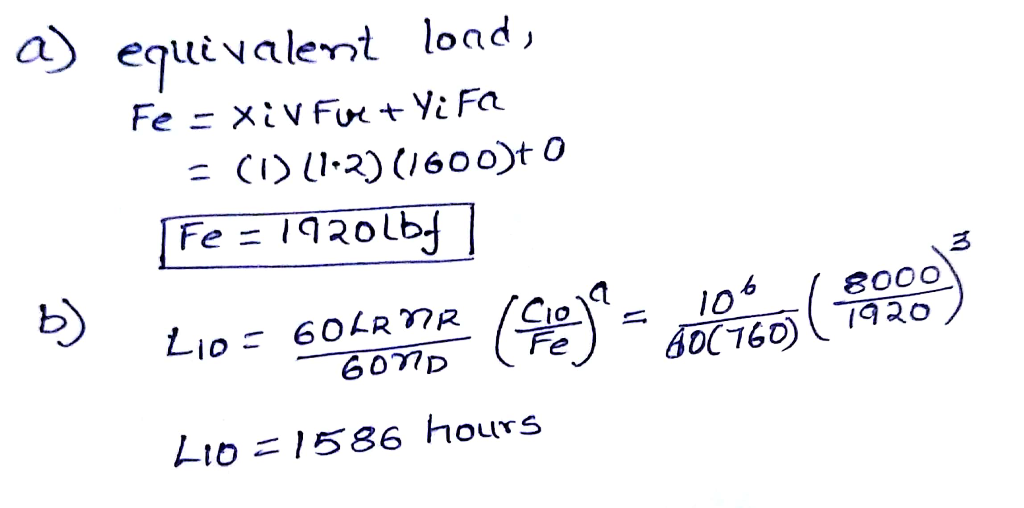 a) equivalent load,
Fe = XiVFr + YiFa
= (1) (1.2) (1600) + 0
Fe = 1920 lbf
b) L10 = 60LRnR / 60nD (C10 / Fe)^a = 10^6 / 60(760) (8000 / 1920)^3
L10 = 1586 hours